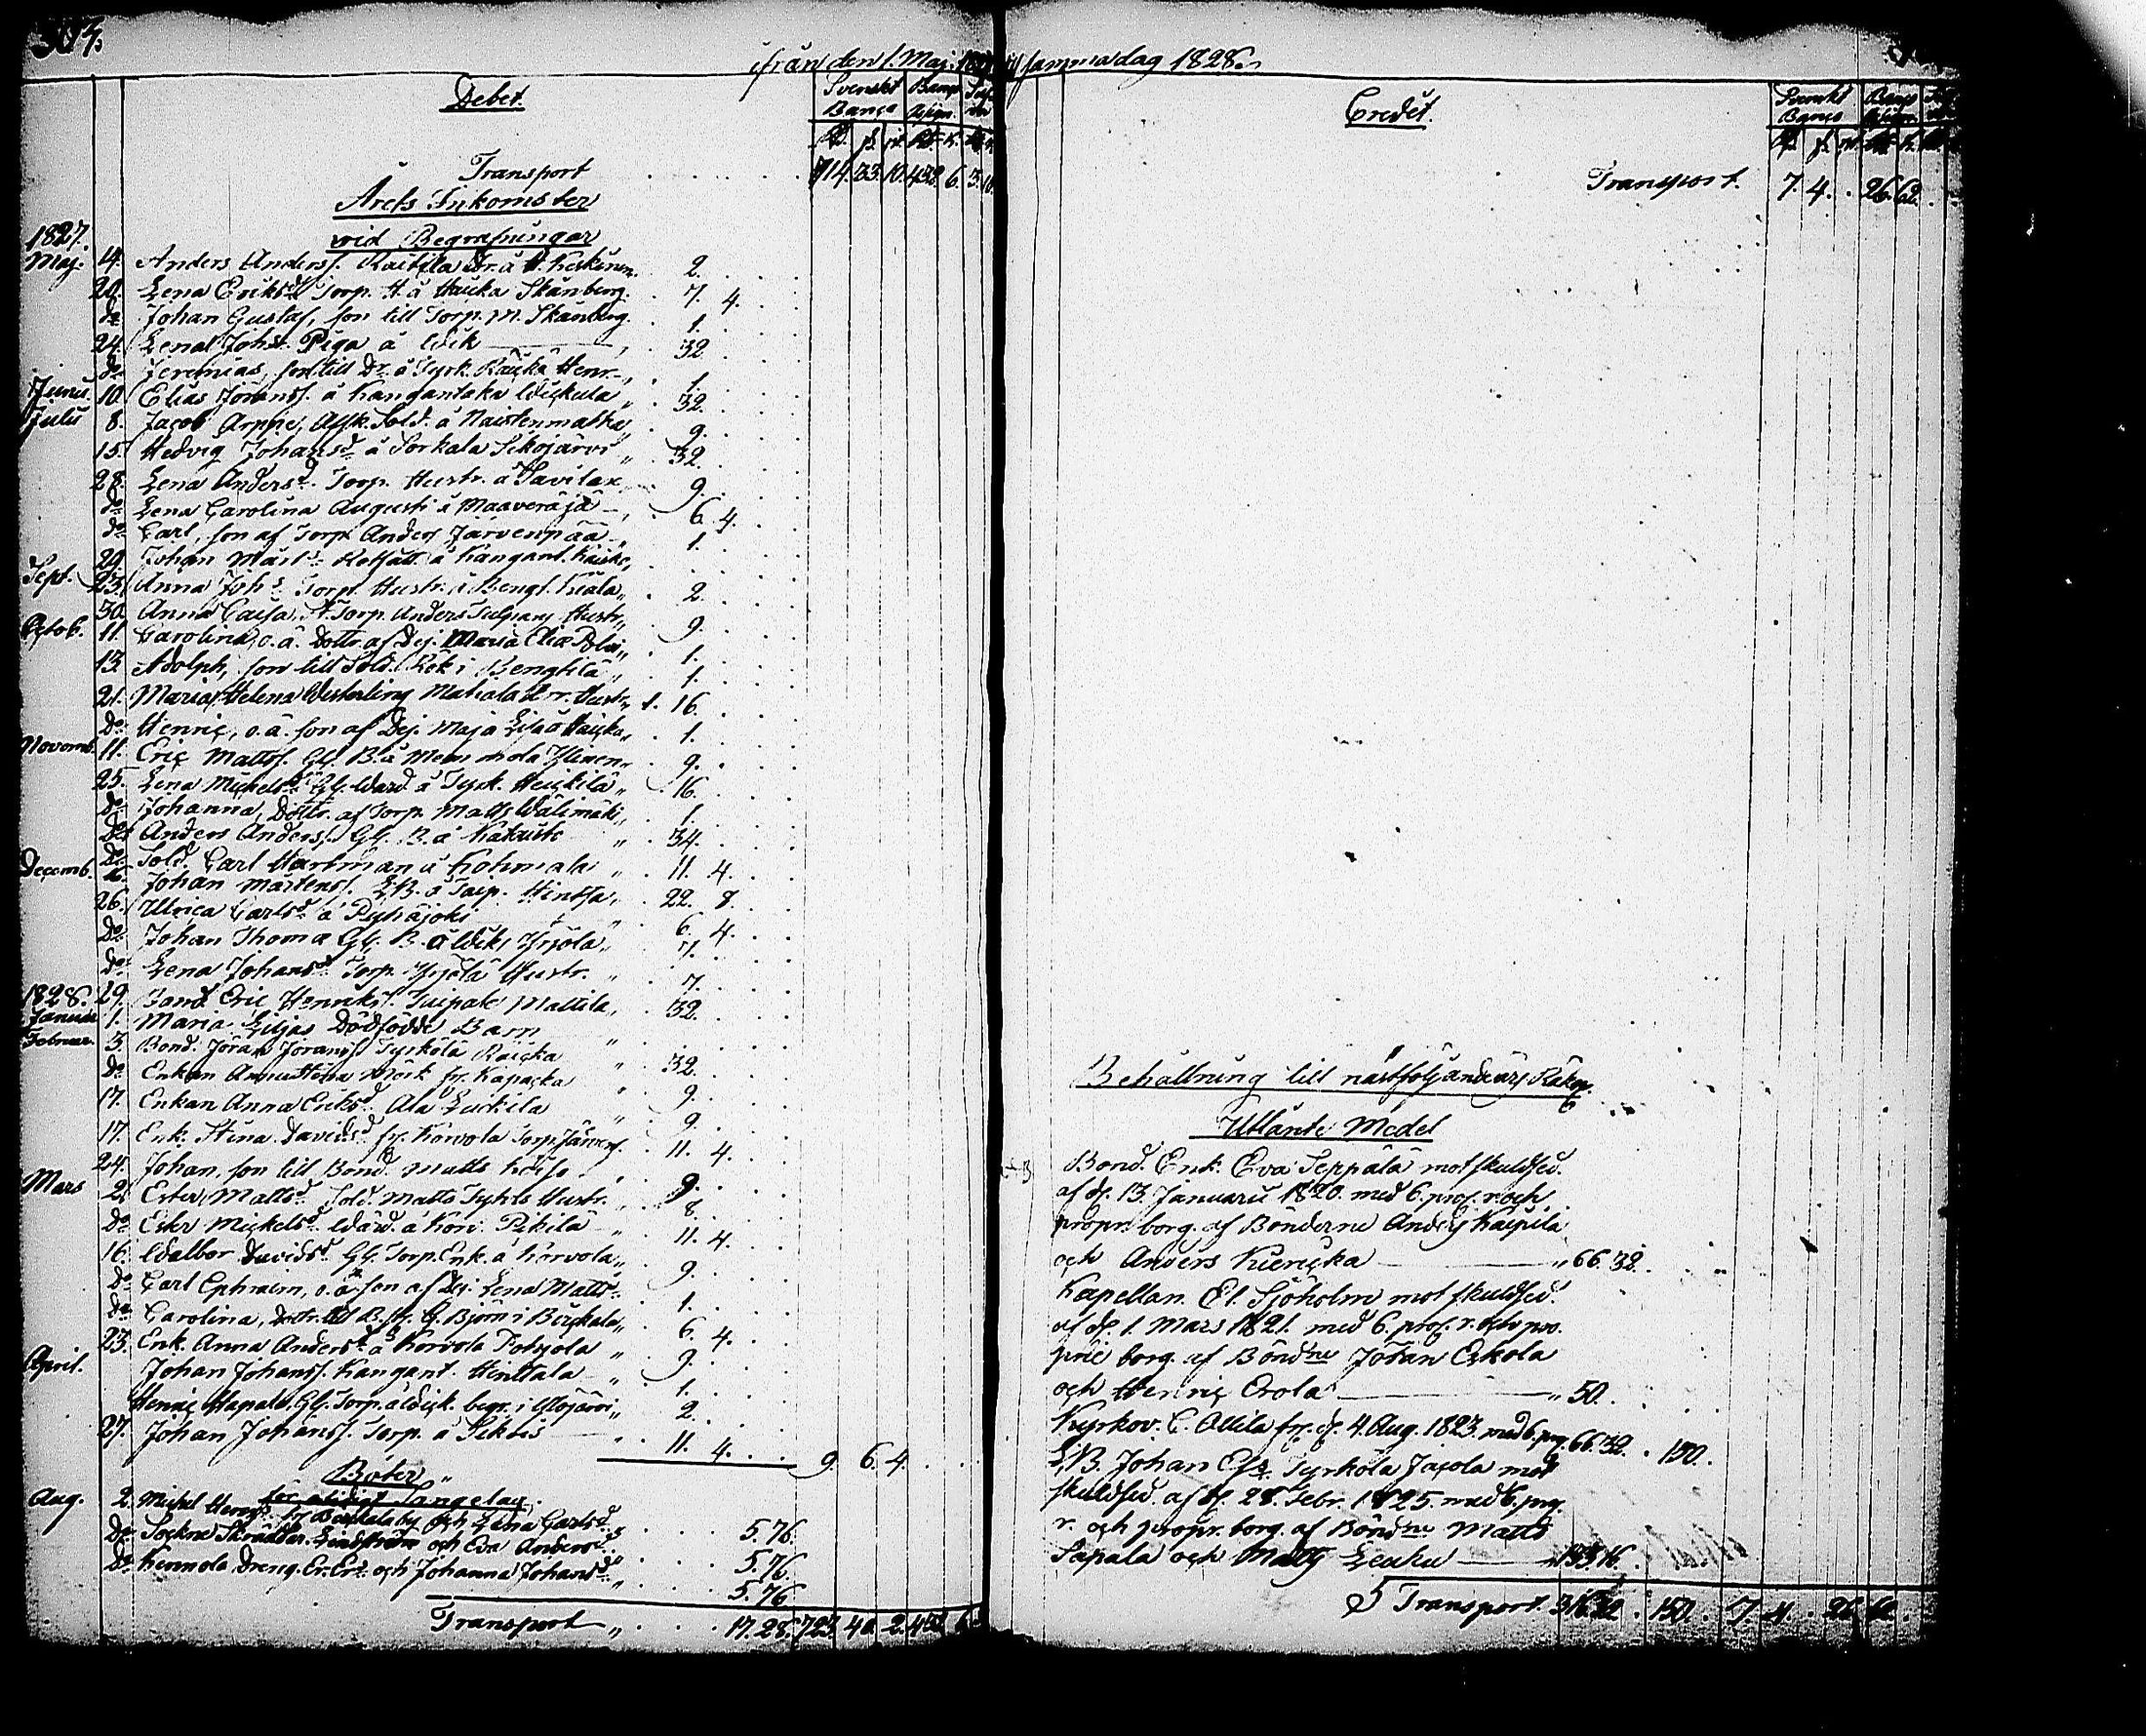 ifrån den 1. Maj. 1827 till samma dag 1828.
Debet.
Svenskt Banco
Banco Assign.
Transport . . . 714. 33. 10. 438. 6. 3. 10.
Årets Inkomster
vid Begrafningar
1827.
Maj. 14. Anders Anderss. Raitila Dr. å N. Keskinen. 2.
20. Lena Eriksd. Torp. H. å Hauka Skanberg. 7. 4.
do Johan Gustaf, son till Torp. M. Skanberg. 1.
24. Lena Johsd. Piga å Wik 32.
do Jeremias, son till Dr. å Tyrk. Raucka Henr. 1.
Junii 10. Elias Jöranss. å Kangantaka Wickula 32.
Julii 8. Jacob Arppe, Afsk. Sold. å Naistenmatka 9.
15. Hedvig Johansd. å Sorkala Sikojärvi 32.
28. Lena Andersd. Torp. Hustr. å Savilax 9.
do Lena Carolina Augusti å Maaveräjä 6. 4.
do Carl, son af Torp. Anders Järvenpää 1.
29. Johan Märts. Rotfatt. å Kangant.
Sept. 23. Anna Johs. Torp. Hustr. å Bengt. 2.
30. Anna Caisa, Torp. Anders Hustr. 9.
Octob. 11. Carolina, o.ä. Dottr. af Pig. Maria Elia 1.
13. Adolph, son till Sold. Rök i Bengtilä 1.
21. Maria Helena Westerling Mahala Hustr. 1. 16.
Do Henric, o.ä. son af Pig. Maja Lisa å Haucka 1.
Novemb. 11. Eric Mattss. Gl. B. å Memmola Ylinen 9.
25. Lena Michelsd. Gl. Värd. å Tyrk. Heickilä 16.
Do Johanna, Dottr. af Torp. Matts Wälimäki 1.
Do Anders Anderss. Gl. B. å Katisto 34.
Do Sold. Carl Hartman å Kohmala 11. 4.
Decemb. 16. Johan Mårtenss. LB. å Taip. Hintsa 22. 8.
26. Ulrica Carlsd. å Pyhäjoki 6. 4.
Do Johan Thomæ Gl. B. å Wik, Yrjölä 7.
Do Lena Johansd. Torp. Yrjölä Hustr. 7.
1828. 29. Bond. Eric Henrikss. Taipale Mattila 32.
Januarii 1. Maria Liljas Dödfödde Barn
Februar. 3. Bond. Jöran Jöranss. Tyrkölä Raicka 32.
Do Enkan Anna Stina Mörk fr. Kapacka 9.
17. Enkan Anna Eriksd. Ala Luckila 9.
17. Enk. Stina Davidsd. fr. Korvola Torp. Järvenp. 11. 4.
24. Johan, son till Bond. Matts 9.
Mars 2. Ester Mattsd. Sold. Matts Hustr. 8.
Do Ester Mickelsd. Wärd. å Korv. Pekilä 11. 4.
16. Walbor Davidsd. Gl. Torp. Enk. å Korvola 9.
Do Carl Ephraim, o.ä. son af Pig. Lena Matts. 1.
Do Carolina, Dottr. till B. G. Björn i Birckala 6. 4.
23. Enk. Anna Andersd. å Korvola Pohjola 9.
April. Johan Johanss. Kangant. Hinttala 1.
Henric Hapala Gl. Torp. å Wick. begr. i Ylöjärvi 2.
27. Johan Johanss. Torp. å Siklois 11. 4. 9. 6. 4.
Böter
för olidigt Sängelag.
Aug. 2. Michel Henrs. fr Birckala by och Lena Carlsd. 5. 76.
Do Sockne Skräddar. Lindström och Eva Andersd. 5. 76.
Do Kennola Dreng. Er. Ers. och Johanna Johansd. 5. 76
Transport 17. 28. 723. 40. 2. 438. 6.
Credit.
Svenskt Banco
Banco Assign.
Transport. 7. 4. . 26. 62.
Behållning till nästföljande års Räkn.
Utlånte Medel
Bond. Enk. Eva Seppälä mot skuldsed.
af d. 13. Januarii 1820. med 6. proc. r. och
propr. borg. af Bönderne Anders Kaupila
och Anders Kiericka 66. 32.
Kapellan. El. Sjöholm mot skuldsed.
af d. 1. Mars 1821. med 6. proc. r. och pro-
prie borg. af Bönd:ne Jöran Eskola
och Henric Erola 50.
Kyrkov. C. Ollila fr. d. 4. Aug. 1823. med 6. prc. 66. 32. . 150.
LB. Johan Ers. Tyrkölä Jacola mot
skuldsed. af d. 28. Febr. 1825. med 6. prc.
r. och propr. borg. af Bönd:ne Matts
Sapala och Matts Leuku 133. 16.
Transport. 316. 32. . 150. . 7. 4. . 26. 62.